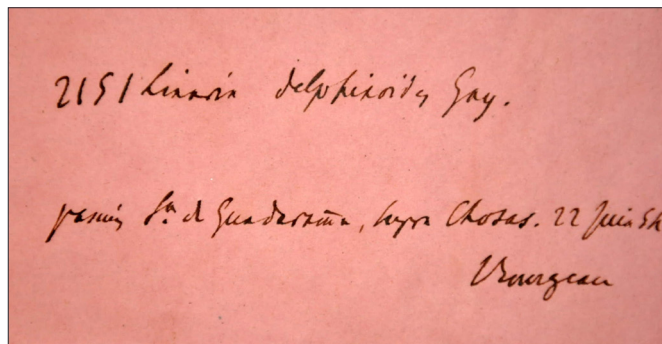 2151 Linaria delphinoides Gay.
Sra de Guadarama, supra Chosas. 22 Juin 54
Bourgeau